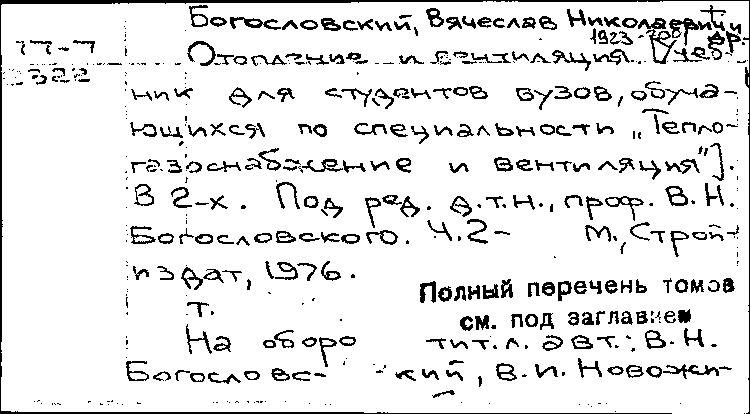 Богословский, Вячеслав Николаевич и др.
1923-
17-7
322
Отопление и вентиляция [Учеб-
ник для студентов вузов, обуча-
ющихся по специальности "Тепло-
газоснабжение и вентиляция"].
В 2-х. Под ред. д.т.н., проф. В.Н.
Богословского. Ч.2- М., Строй-
издат, 1976.
Полный перечень томов
т.
см. под заглавием
На оборо тит.л. авт.: В.Н.
Богословс- кий, В.И. Новожи-